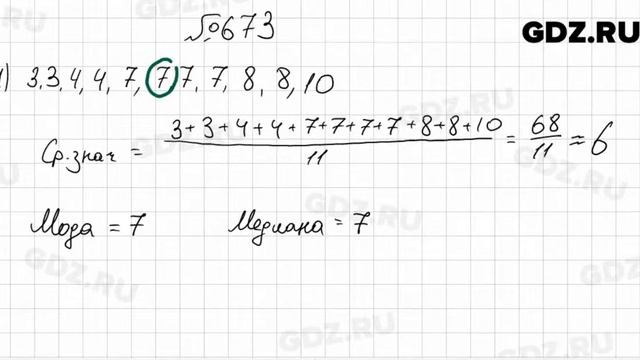 №673
GDZ.RU
1) 3, 3, 4, 4, 7, 7, 7, 7, 8, 8, 10
Ср. знач = (3+3+4+4+7+7+7+7+8+8+10)/11 = 68/11 ≈ 6
Мода = 7 Медиана = 7
GDZ.RU
GDZ.RU
GDZ.RU
GDZ.RU